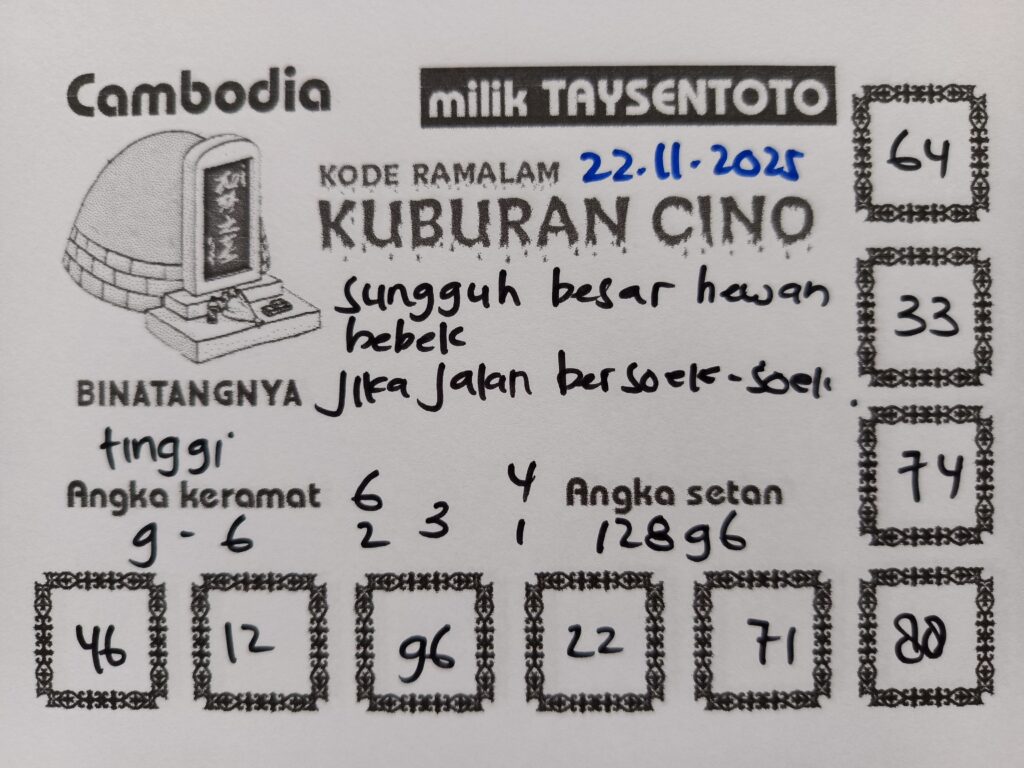 Cambodia
milik TAYSENTOTO
KODE RAMALAM 22.11.2025
KUBURAN CINO
sungguh besar hewan
bebek
Jika Jalan bersoek-soek.
BINATANGNYA
tinggi
Angka keramat
9 - 6
6 4
3
2 1
Angka setan
12896
64
33
74
46 12 96 22 71 80